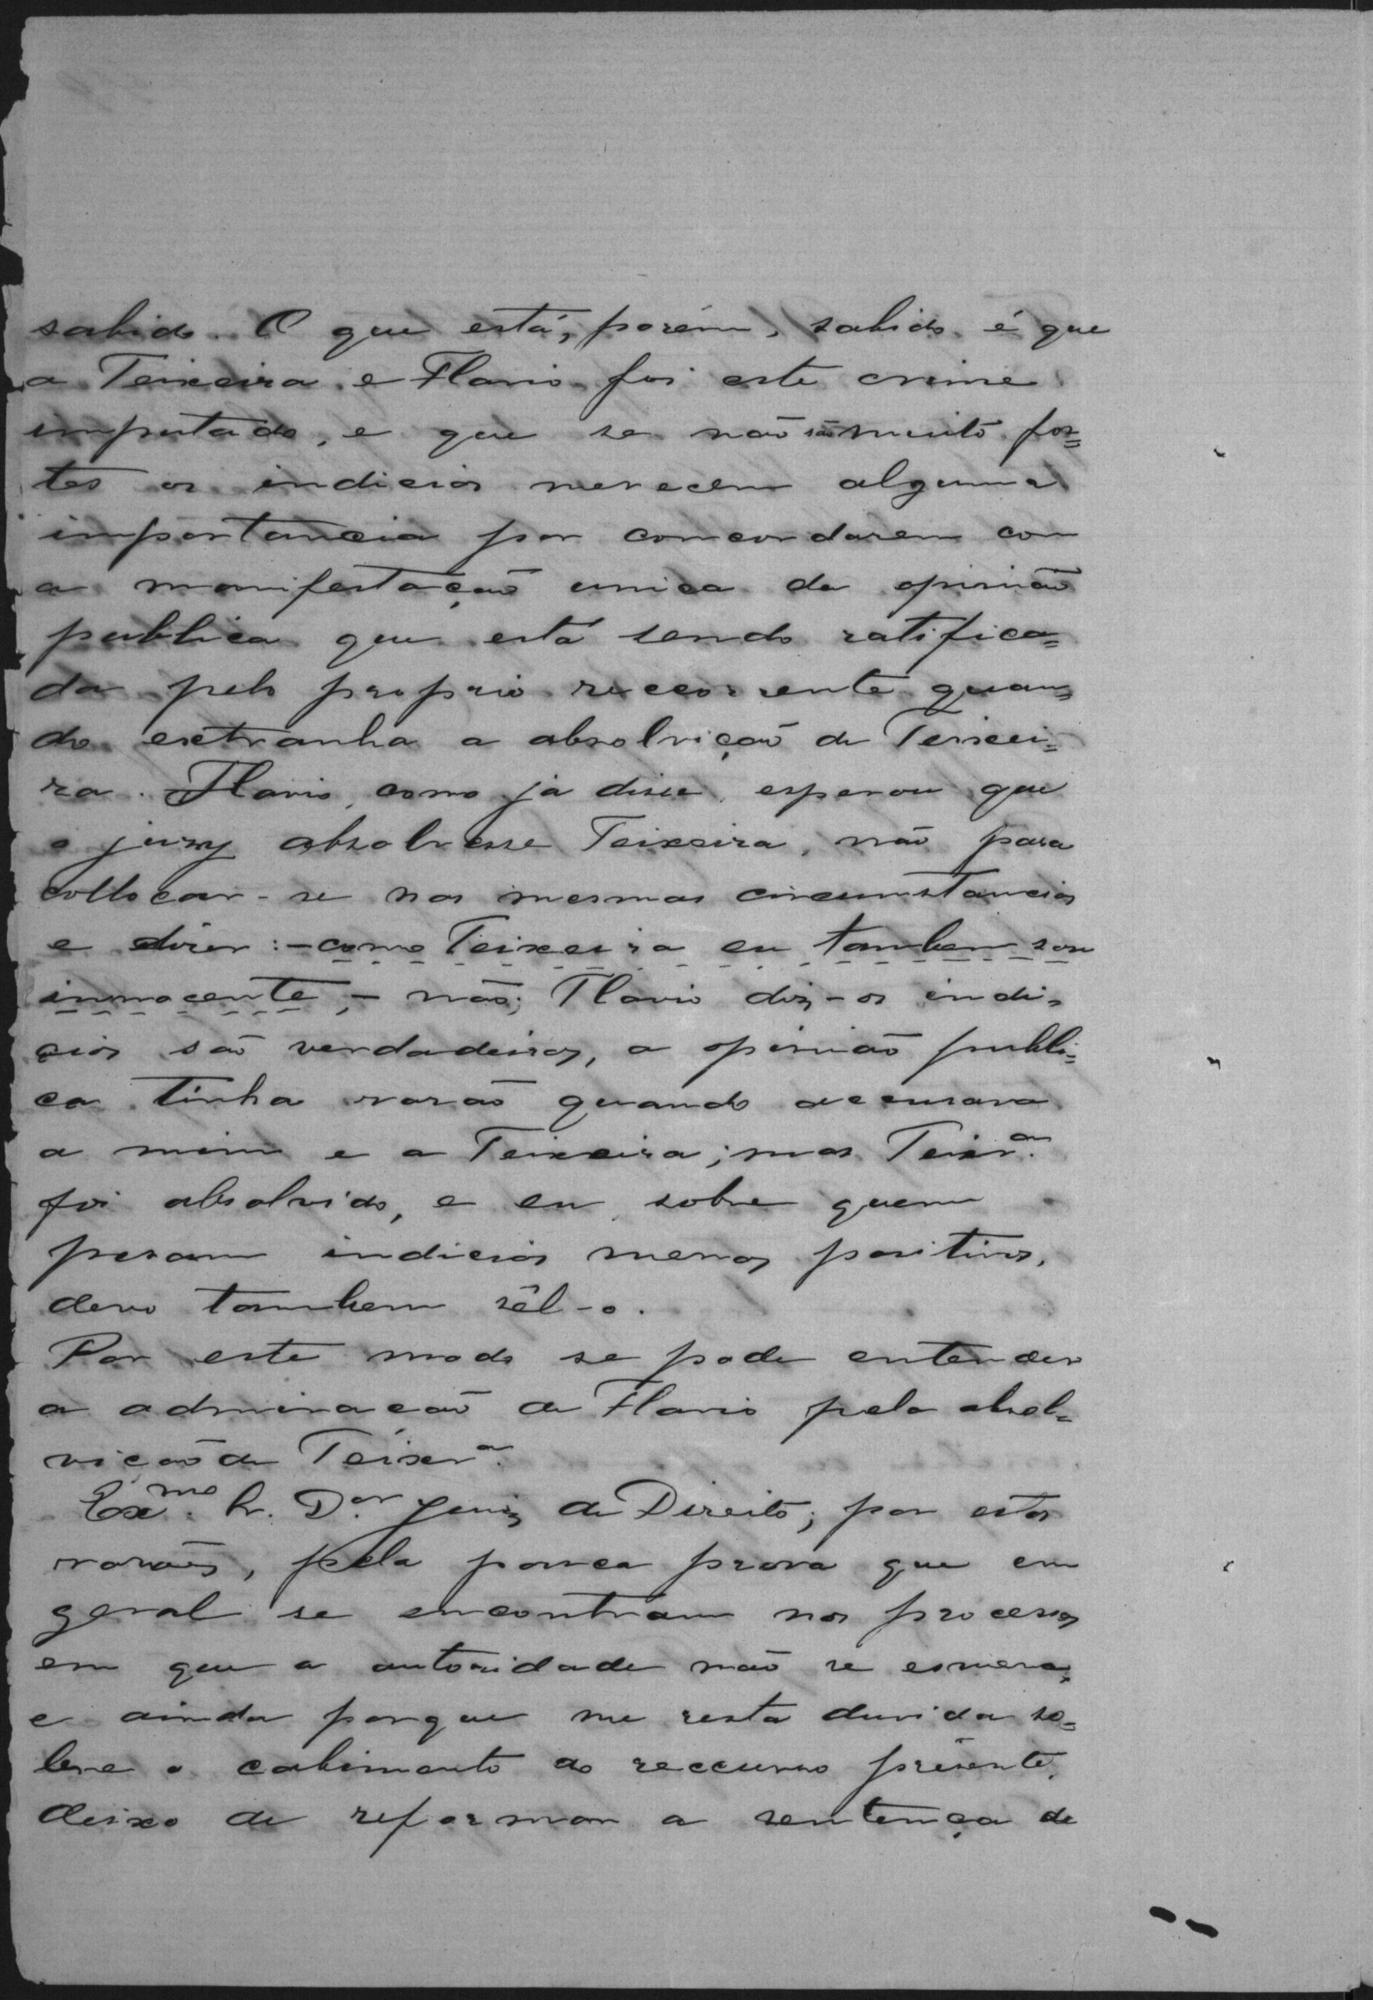 sabido. O que está, porém, sabido é que
a Teixeira e Flavio foi este crime
imputado, e que se não são muito for=
tes os indicios merecem alguma
importancia por concordarem com
a manifestação unica da opinião
publica que está sendo ratifica=
da pelo proprio reccorrente quan=
do extranha a absolvição de Teixei=
ra. Flavio, como já disse, esperou que
o jury absolvesse Teixeira, não para
collocar-se nas mesmas circumstancias
e dizer: - como Teixeira eu tambem sou
innocente, - não; Flavio diz - os indi=
cios são verdadeiros, a opinião publi=
ca tinha razão quando accusava
a mim e a Teixeira; mas Teixrª.
foi absolvido, e eu sobre quem
pesam indicios menos positivos,
devo tambem sêl-o.
Por este modo se pode entender
a admiração de Flavio pela absol=
vição de Teixerª.
Exmo. Sr. Dor Juiz de Direito; por estas
razões, pela pouca prova que em
geral se encontram nos processos
em que a autoridade não se esmera,
e ainda porque me resta duvida so=
bre o cabimento do reccurso presente,
deixo de reformar a sentença de